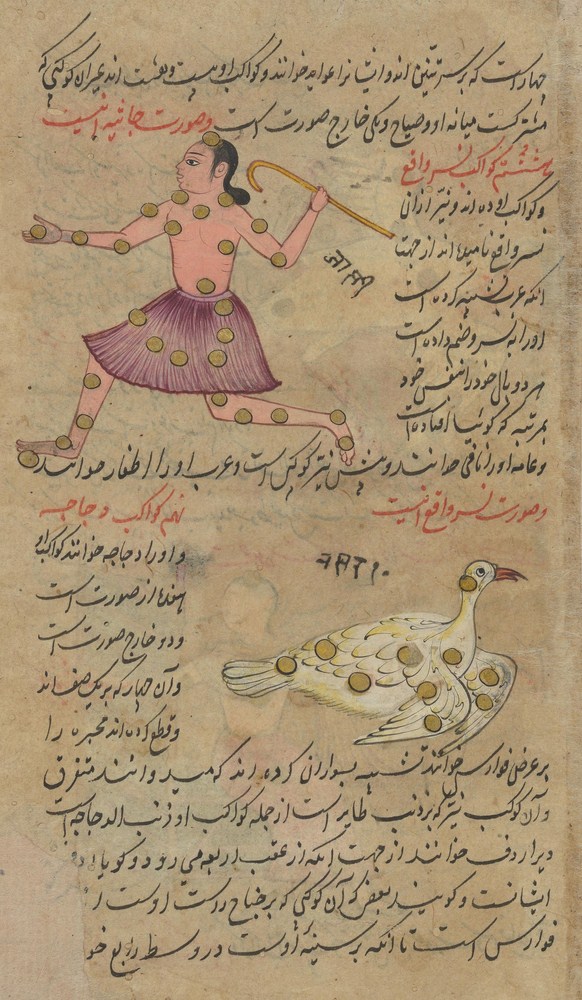 چهار است که بر سر تنین اند و ایشانرا عواید خوانند و کواکب او بیست و هشت اند بغیر از کوکبی که
مشترکست میانه او و صیاح و یکی خارج صورت است وصورت جاثیه اینست
هشتم کواکب نسر واقع
و کواکب او ده اند و نیر از آن
نسر واقع نامیده اند از جهت
انکه عرب تشبیه کرده است
او را به نسر و ضم داده است
هر دو بال خود را بنفس خود
بمرتبه که کوئیا افتاده است
و عامه او را اثافی خوانند و پیش نیر کوکبی است و عرب او را اظفار خوانند
وصورت نسر واقع اینست
نهم کواکب دجاجه
و او را دجاجه خوانند کواکب او
هفده از صورت است
و دو خارج صورت است
و آن چهار که بر یک صف اند
و قطع کرده اند مجره را
بر عرض فوارس خوانند تشبیه بسوارانی کرده اند که میروانند متفرق
و آن کوکب نیر که بر ذنب طایر است از جمله کواکب او ذنب الدجاجه است
و یرا ردف خوانند از جهت انکه از عقب اربعه می رود و کویا
ایشانست و کویند بعضی که آن کوکبی که بر جناح راست اوست از
فوارس است تا انکه بر سینه اوست در وسط رابع